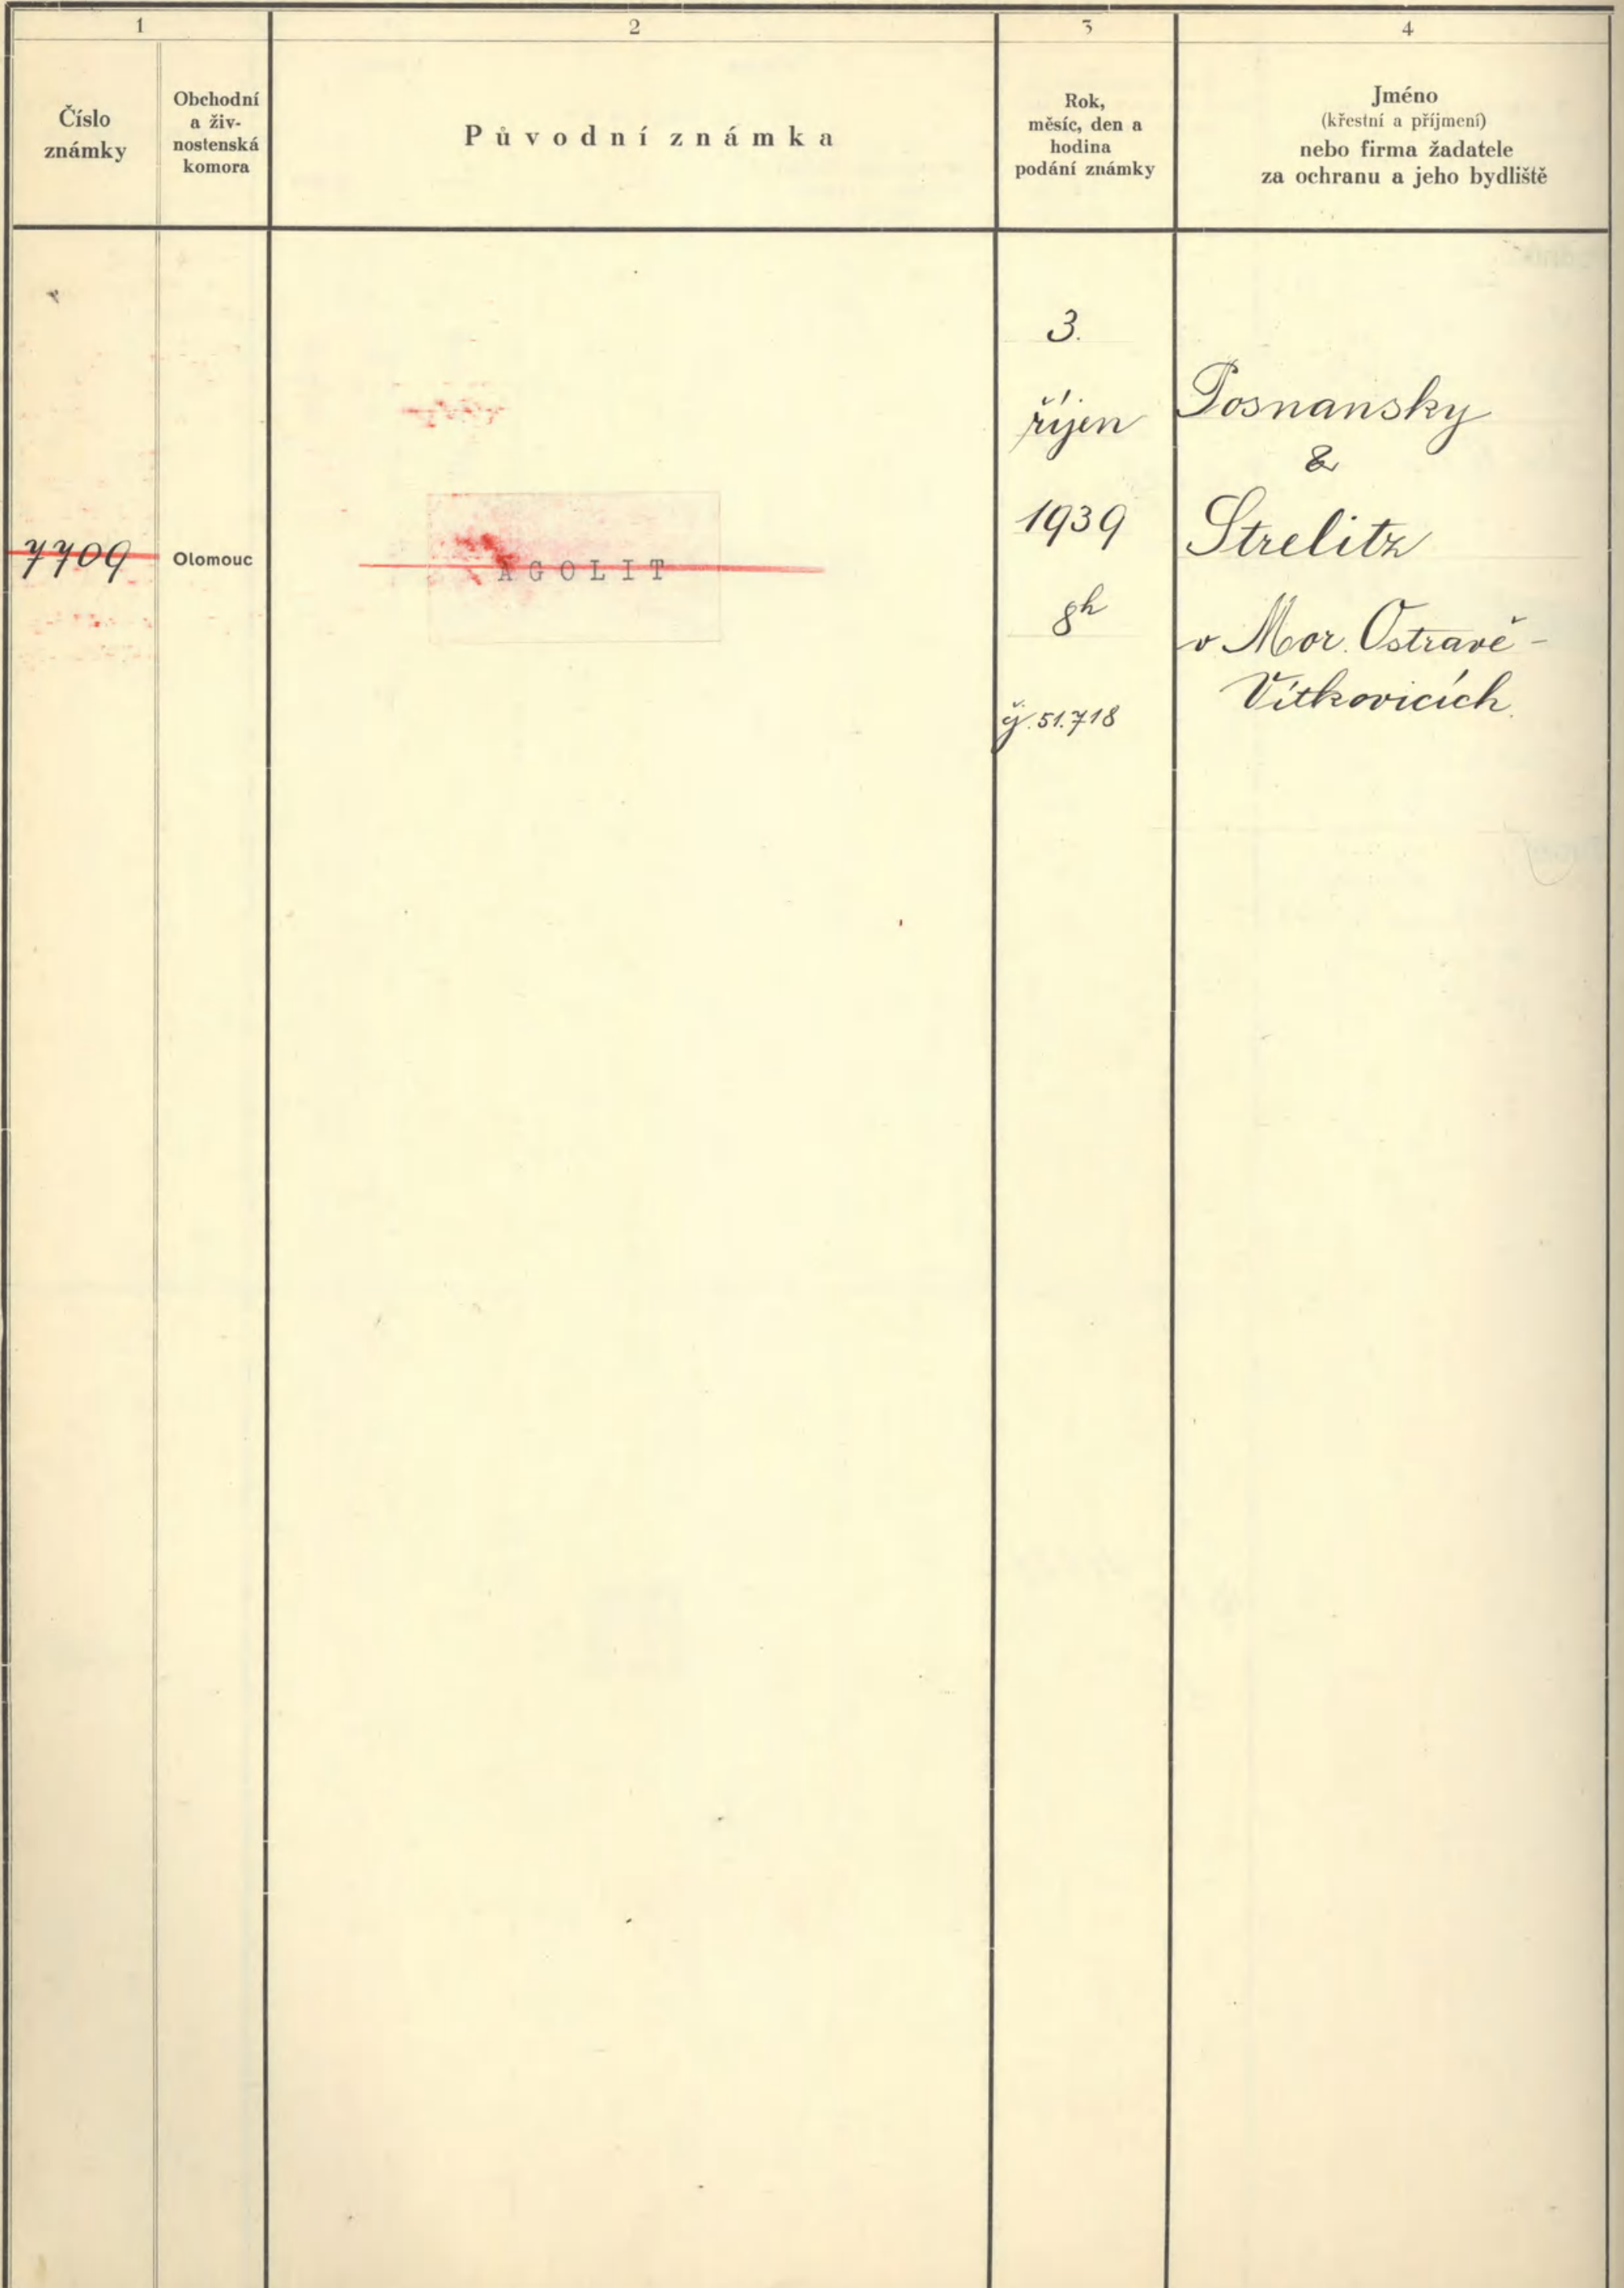 1 2 3 4
Číslo
známky
Obchodní
a živ-
nostenská
komora
Původní známka
Rok,
měsíc, den a
hodina
podání známky
Jméno
(křestní a příjmení)
nebo firma žadatele
za ochranu a jeho bydliště
7709
Olomouc
AGOLIT
3.
říjen
1939
8h
čj. 51.718
Posnansky
&
Strelitz
v Mor. Ostravě-
Vítkovicích.